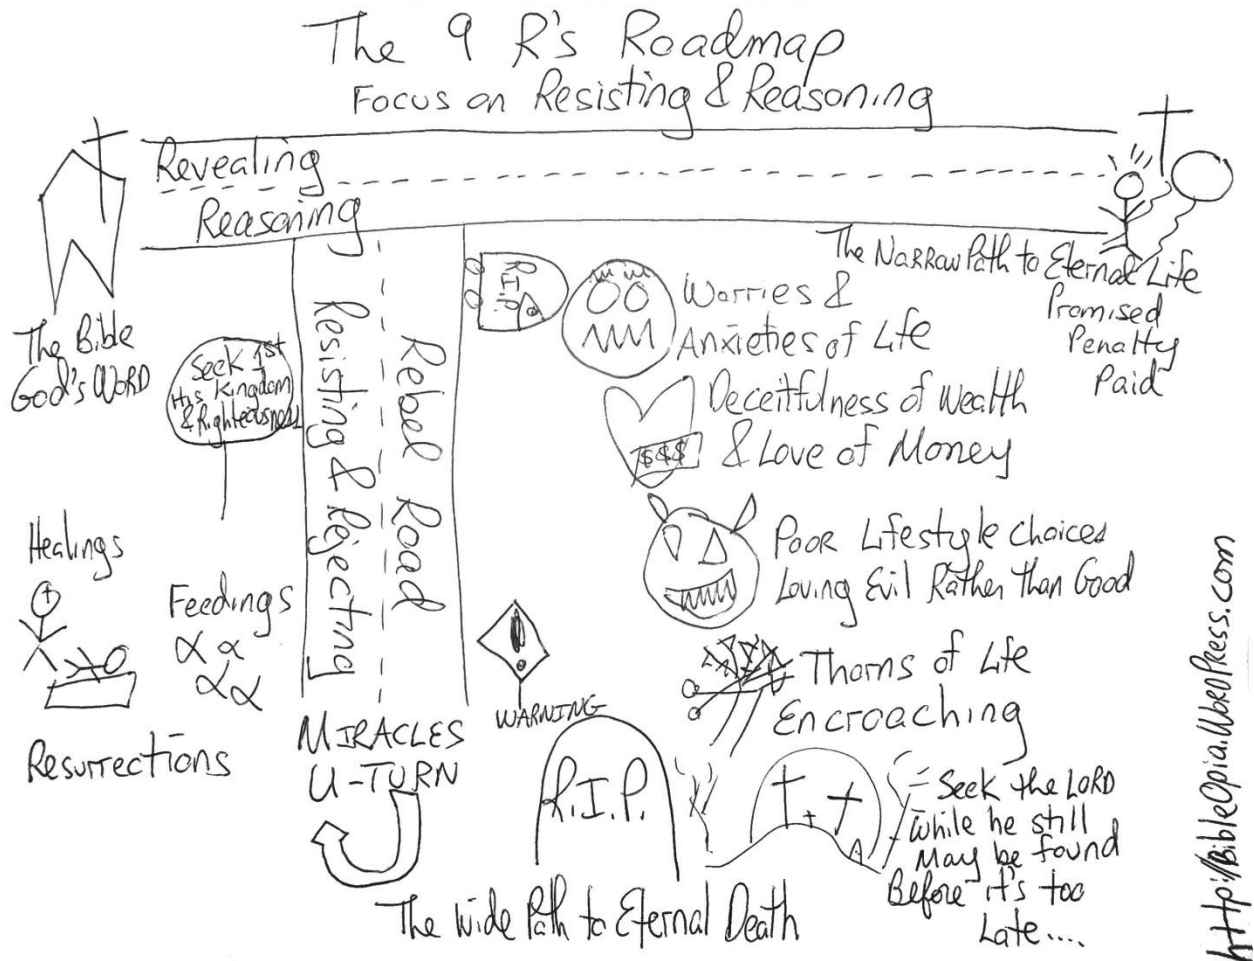 The 9 R's Roadmap
Focus on Resisting & Reasoning
Revealing
Reasoning
The Bible
God's WORD
The Narrow Path to Eternal Life
Promised
Penalty
Paid
Seek 1st
His Kingdom
& Righteousness
Resisting & Rejecting
Rebel Road
R.I.P.
Worries &
Anxieties of Life
Deceitfulness of Wealth
& Love of Money
$$$
Poor Lifestyle Choices
Loving Evil Rather Than Good
Healings
Feedings
Resurrections
WARNING
Thorns of Life
Encroaching
MIRACLES
U-TURN
R.I.P.
Seek the LORD
while he still
May be found
Before it's too
Late....
The Wide Path to Eternal Death
http://BibleOpia.WordPress.com